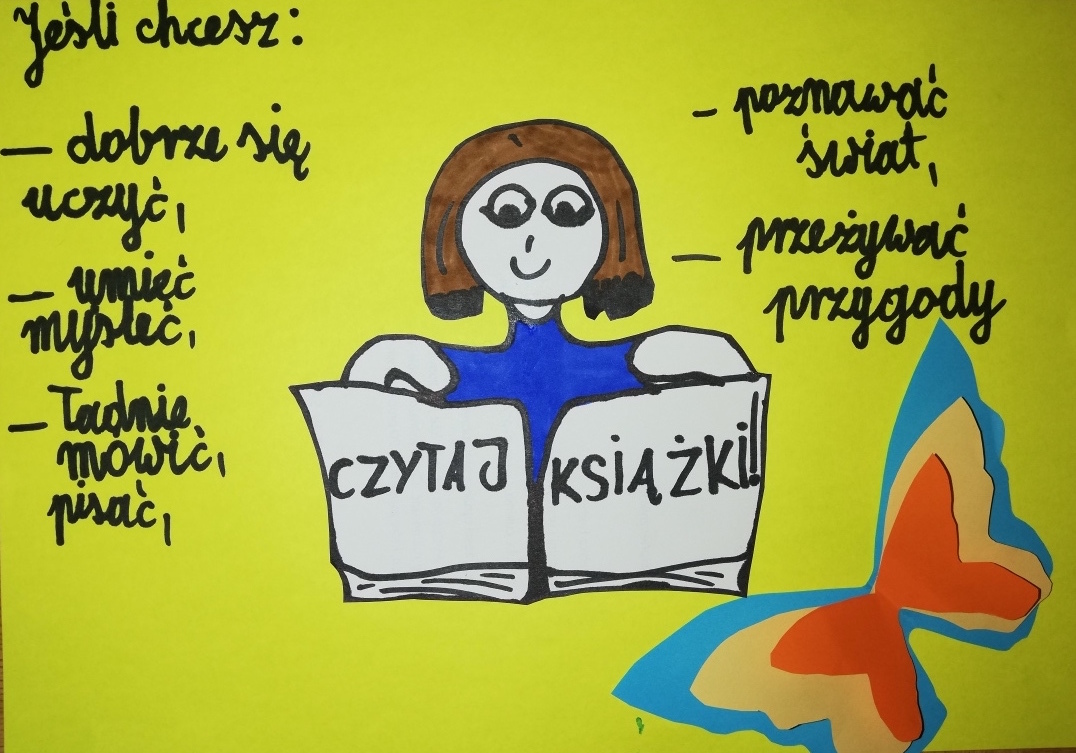 Jeśli chcesz:
— dobrze się
uczyć,
— umieć
myśleć,
— Ładnie
mówić,
pisać,
– poznawać
świat,
— przeżywać
przygody
CZYTAJ
KSIĄŻKI!